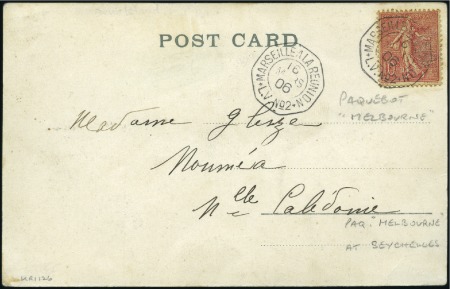 POST CARD
MARSEILLE A LA REUNION
16
06
L.V. Nº2
PAQUEBOT
"MELBOURNE"
Madame Glize
Nouméa
Nlle Calédonie
PAQ. "MELBOURNE"
AT SEYCHELLES